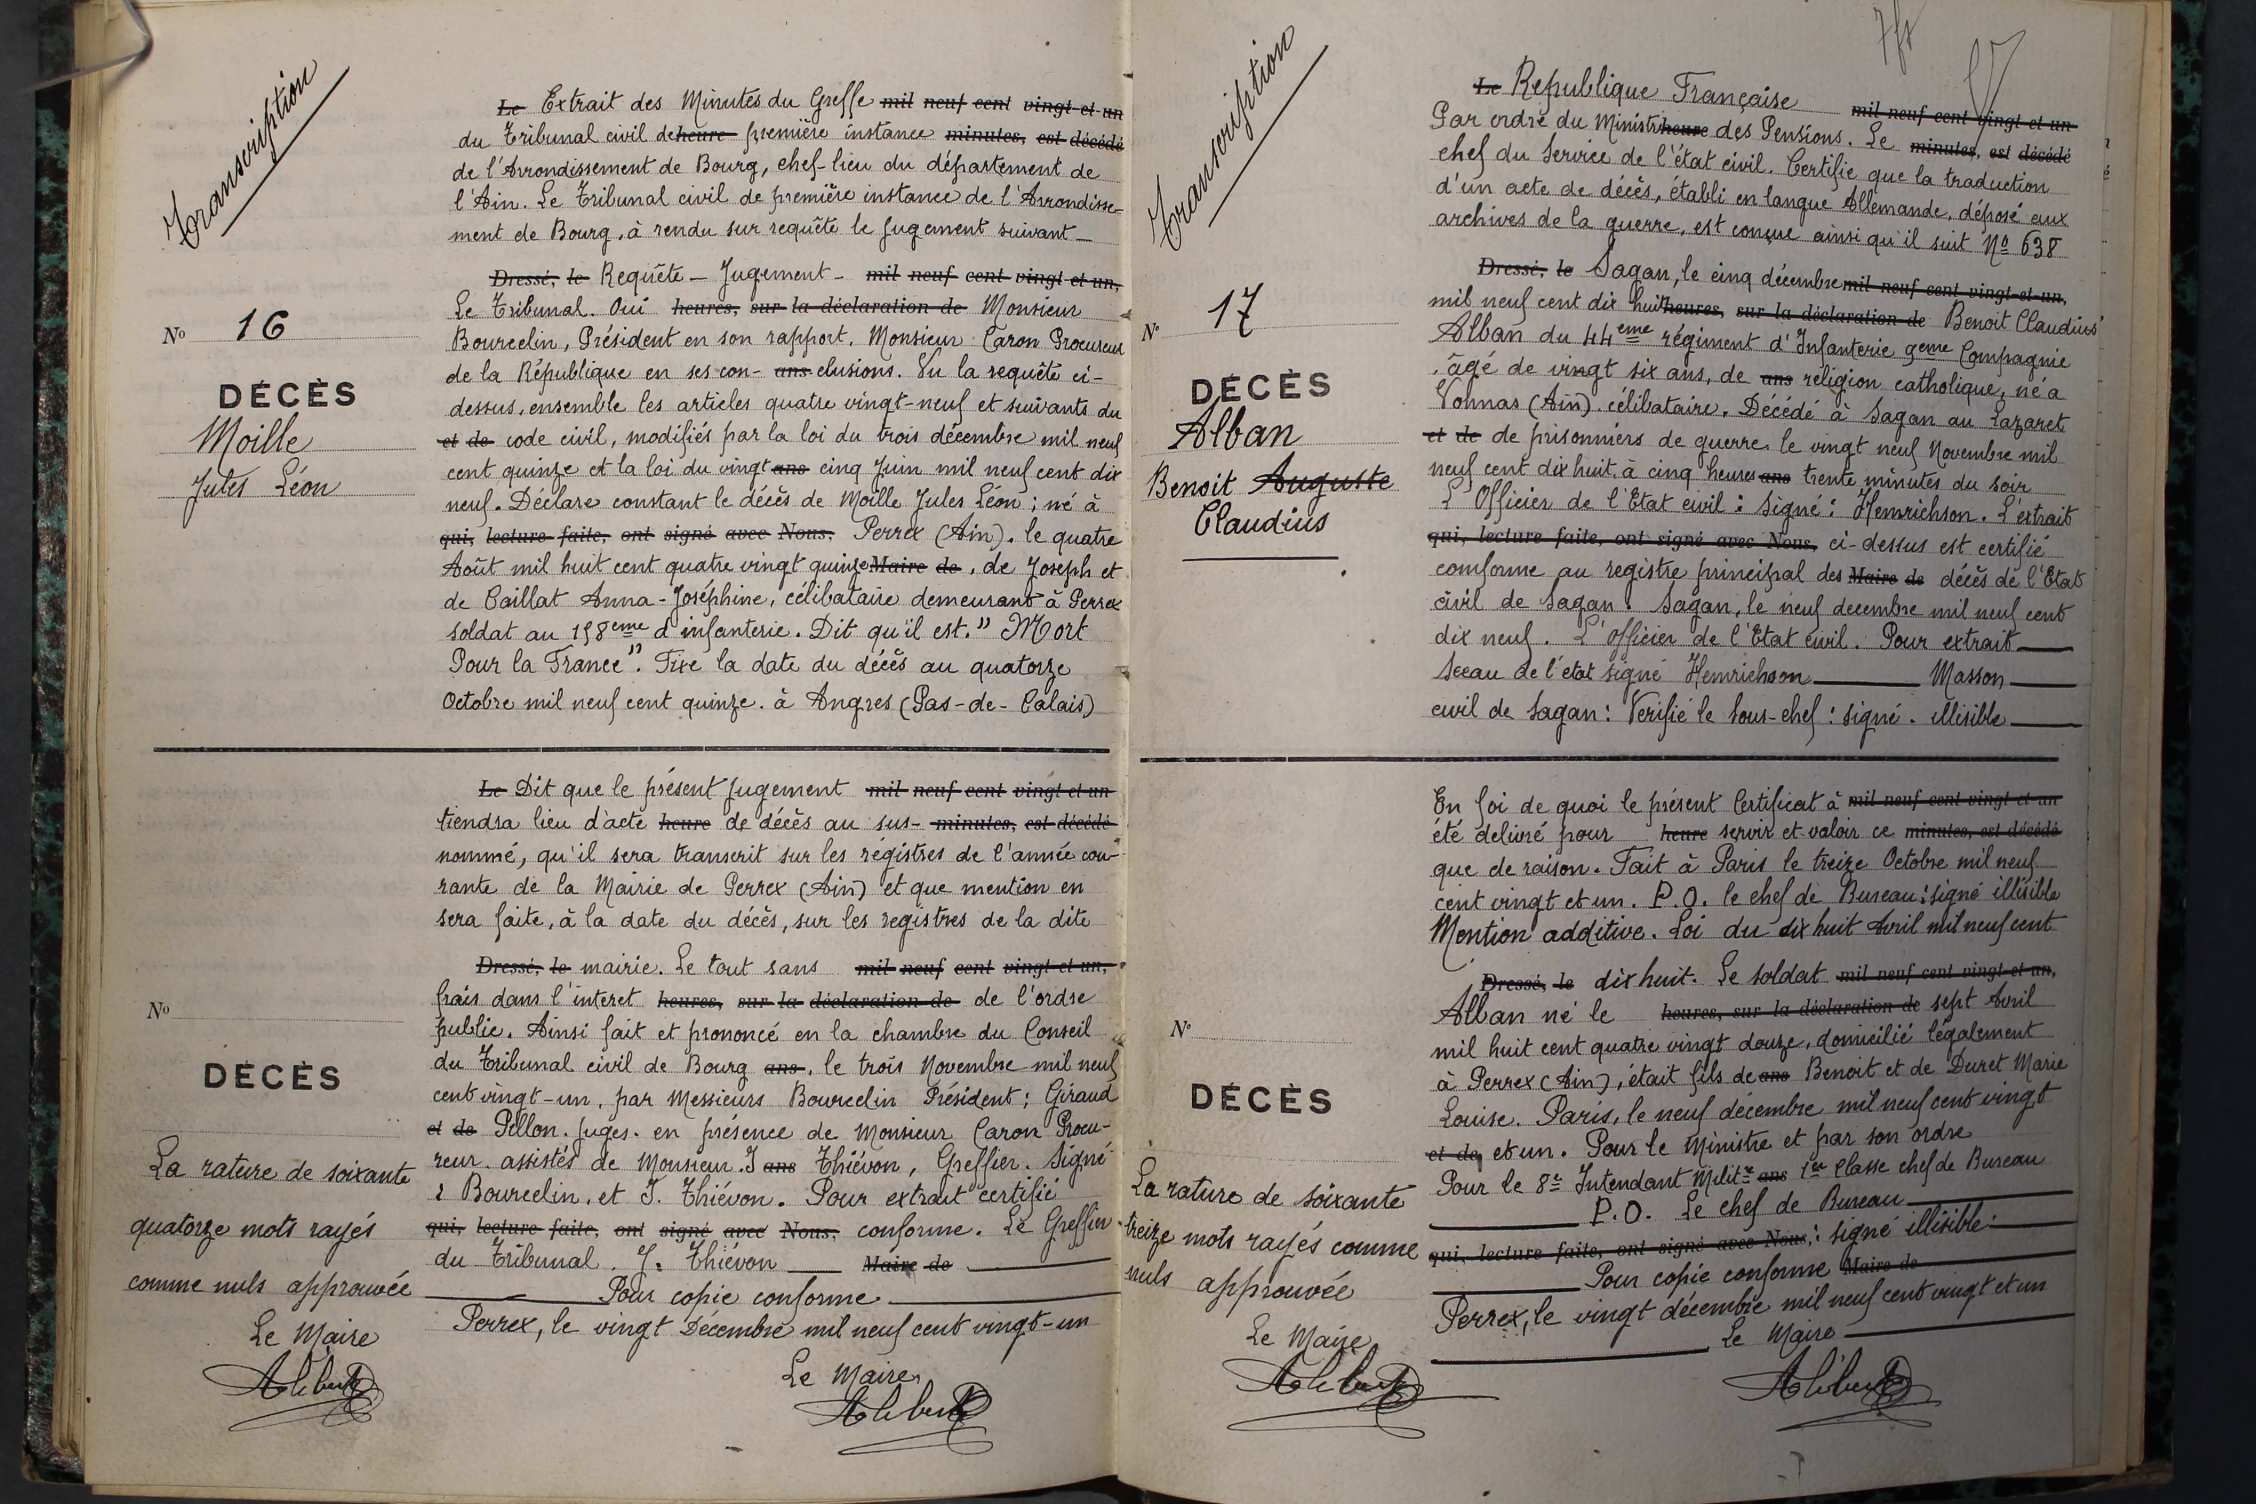 Transcription
Le Extrait des Minutes du Greffe mil neuf cent vingt-et-un
du Tribunal civil de heure première instance minutes, est décédé
de l'Arrondissement de Bourg, chef-lieu du département de
l'Ain. Le Tribunal civil de première instance de l'Arrondisse-
ment de Bourg, à rendu sur requête le jugement suivant
Dressé, le Requête - Jugement - mil neuf cent vingt-et-un,
Le Tribunal. Oui heures, sur la déclaration de Monsieur
Nº 16
Bourcelin, Président en son rapport, Monsieur Caron Procureur
de la République en ses con- ans clusions. Vu la requête ci-
DÉCÈS
dessus, ensemble les articles quatre vingt-neuf et suivants du
Moille
et de code civil, modifiés par la loi du trois décembre mil neuf
cent quinze et la loi du vingt ans cinq Juin mil neuf cent dix
Jules Léon
neuf. Déclare constant le décès de Moille Jules Léon ; né à
qui, lecture faite, ont signé avec Nous, Perrex (Ain). le quatre
Août mil huit cent quatre vingt quinze Maire de, de Joseph et
de Caillat Anna-Joséphine, célibataire demeurant à Perrex
soldat au 158eme d'infanterie. Dit qu'il est." Mort
Pour la France". Fixe la date du décès au quatorze
Octobre mil neuf cent quinze. à Angres (Pas-de-Calais)
Le Dit que le présent jugement mil neuf cent vingt-et-un
tiendra lieu d'acte heure de décès au sus- minutes, est décédé
nommé, qu'il sera transcrit sur les régistres de l'année cou-
rante de la Mairie de Perrex (Ain) et que mention en
sera faite, à la date du décès, sur les registres de la dite
Dressé, le mairie. Le tout sans mil neuf cent vingt-et-un,
frais dans l'interet heures, sur la déclaration de de l'ordre
Nº
public. Ainsi fait et prononcé en la chambre du Conseil
du Tribunal civil de Bourg ans, le trois Novembre mil neuf
DÉCÈS
cent vingt-un, par Messieurs Bourcelin Président ; Giraud
et de Pellon. juges. en présence de Monsieur Caron Procu-
reur. assistés de Monsieur. J ans Thiévon, Greffier. Signé
: Bourcelin, et J. Thiévon. Pour extrait certifié
qui, lecture faite, ont signé avec Nous, conforme. Le Greffier
du Tribunal. J. Thiévon Maire de
Pour copie conforme
Perrex, le vingt Décembre mil neuf cent vingt-un
Le Maire
La rature de soixante
quatorze mots rayés
comme nuls approuvée
Le Maire
Transcription
Le Republique Française mil neuf cent vingt-et-un
Par ordre du Ministre heure des Pensions. Le minutes, est décédé
chef du Service de l'état civil. Certifie que la traduction
d'un acte de décès, établi en langue Allemande, déposé aux
archives de la guerre, est conçue ainsi qu'il suit Nº 638
Dressé, le Sagan, le cinq décembre mil neuf cent vingt-et-un,
mil neuf cent dix huit heures, sur la déclaration de Benoit Claudius
Nº 17
Alban du 44eme régiment d'Infanterie 9eme Compagnie
, âgé de vingt six ans, de ans réligion catholique, né a
DÉCÈS
Vonnas (Ain). célibataire. Décédé à Sagan au Lazaret
Alban
et de de prisonniers de guerre, le vingt neuf Novembre mil
neuf cent dix huit, à cinq heures ans trente minutes du soir
Benoit Auguste
Claudius
L'Officier de l'Etat civil : Signé : Hemrichson. L'extrait
qui, lecture faite, ont signé avec Nous, ci-dessus est certifié
conforme au registre principal des Maire de décès de l'Etat
civil de Sagan. Sagan, le neuf decembre mil neuf cent
dix neuf. L'officier de l'Etat civil. Pour extrait
Sceau de l'état signé Hemrichson Masson
civil de Sagan : Verifié le Sous-chef : signé. illisible
En foi de quoi le présent Certificat à mil neuf cent vingt-et-un
été delivré pour heure servir et valoir ce minutes, est décédé
que de raison. Fait à Paris le treize Octobre mil neuf
cent vingt et un. P.O. le chef de Bureau : signé illisible
Mention additive. Loi du dix huit Avril mil neuf cent
Dressé, le dix huit. Le soldat mil neuf cent vingt-et-un,
Alban né le heures, sur la déclaration de sept Avril
Nº
mil huit cent quatre vingt douze, domicilié légalement
à Perrex (Ain), était fils de ans Benoit et de Duret Marie
DÉCÈS
Louise. Paris, le neuf décembre mil neuf cent vingt
et de, et un. Pour le Ministre et par son ordre
Pour le 8e Intendant Milit.re ans 1er Classe chef de Bureau
P.O. Le chef de Bureau
qui, lecture faite, ont signé avec Nous, : signé illisible.
Pour copie conforme Maire de
Perrex, le vingt décembre mil neuf cent vingt et un
Le Maire
La rature de soixante
treize mots rayés comme
nuls approuvée
Le Maire